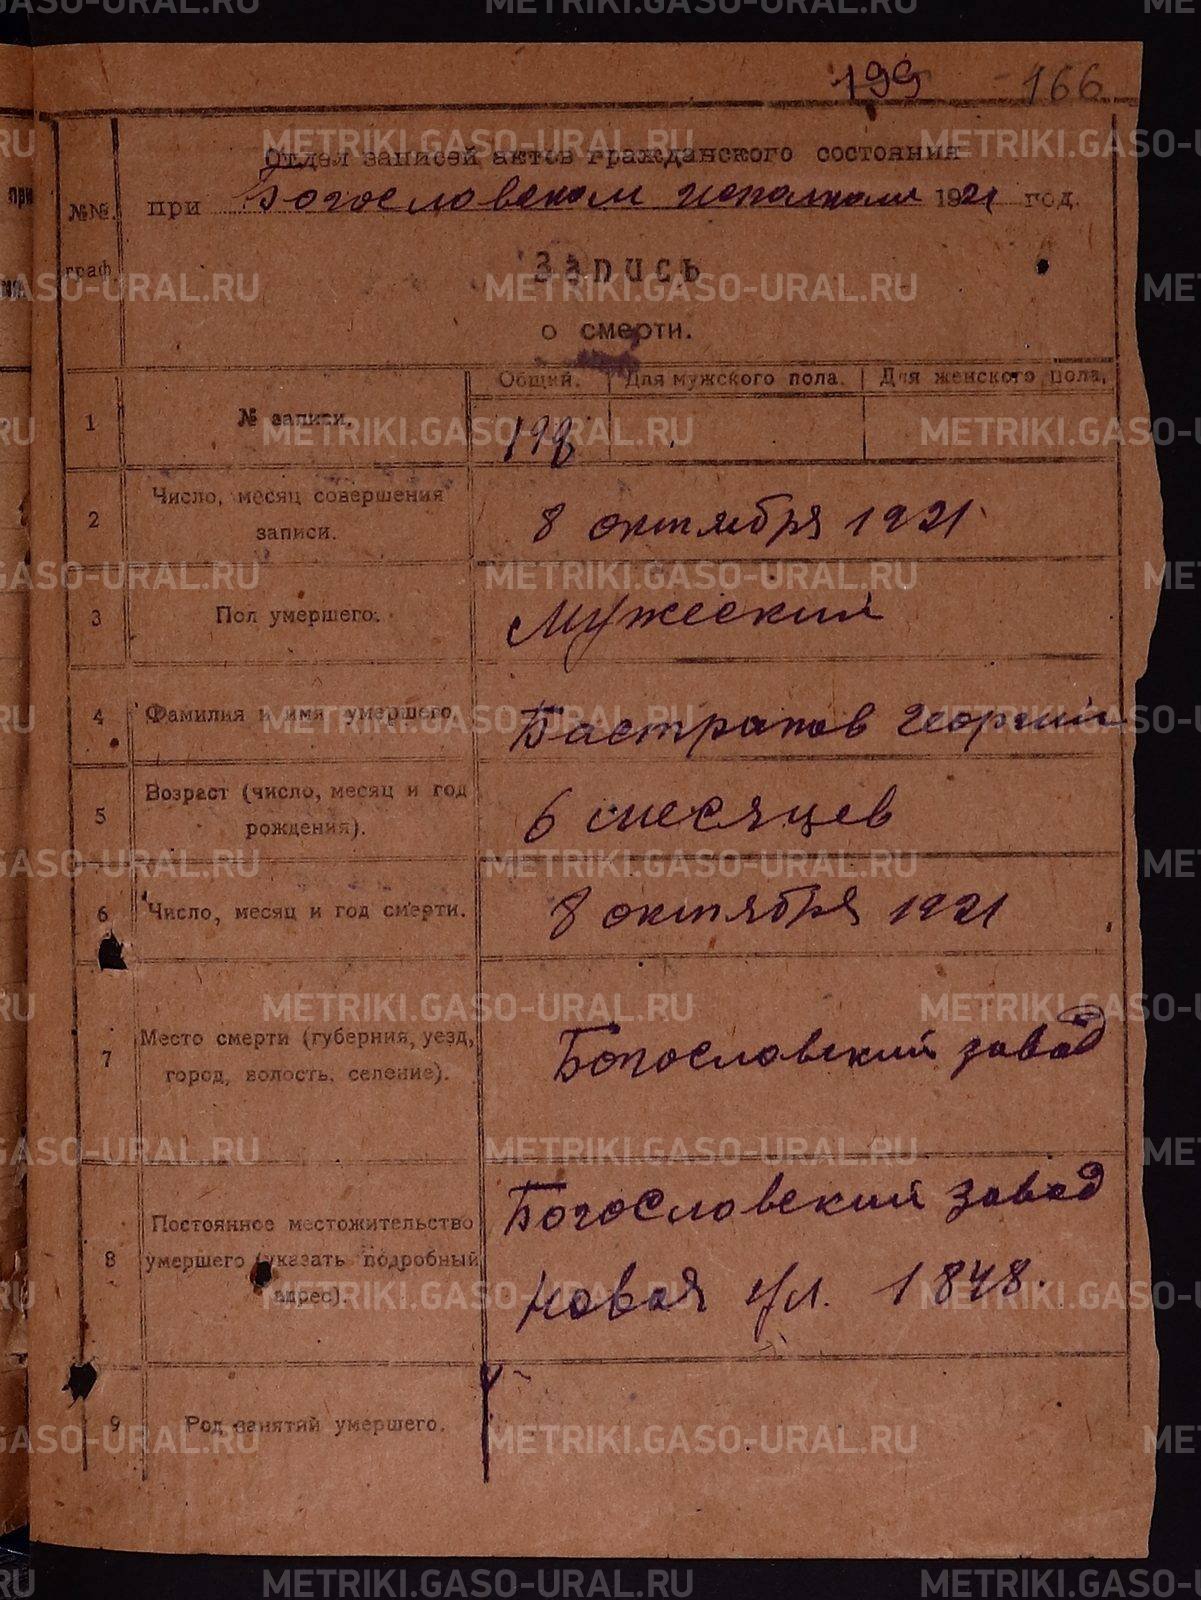 199 166
Отдел записей актов гражданского состояния
при Богословском исполкоме 1921 год.
№№ граф.
Запись
о смерти.
Общий. Для мужского пола. Для женского пола.
1 № записи. 198
2 Число, месяц совершения
записи.
8 октября 1921
3 Пол умершего. Мужеский
4 Фамилия и имя умершего Бастраков Георгий
5 Возраст (число, месяц и год
рождения).
6 месяцев
6 Число, месяц и год смерти. 8 октября 1921
7 Место смерти (губерния, уезд,
город, волость, селение).
Богословский завод
8 Постоянное местожительство
умершего (указать подробный
адрес).
Богословский завод
Новая ул. 1848.
9 Род занятий умершего.
METRIKI.GASO-URAL.RU